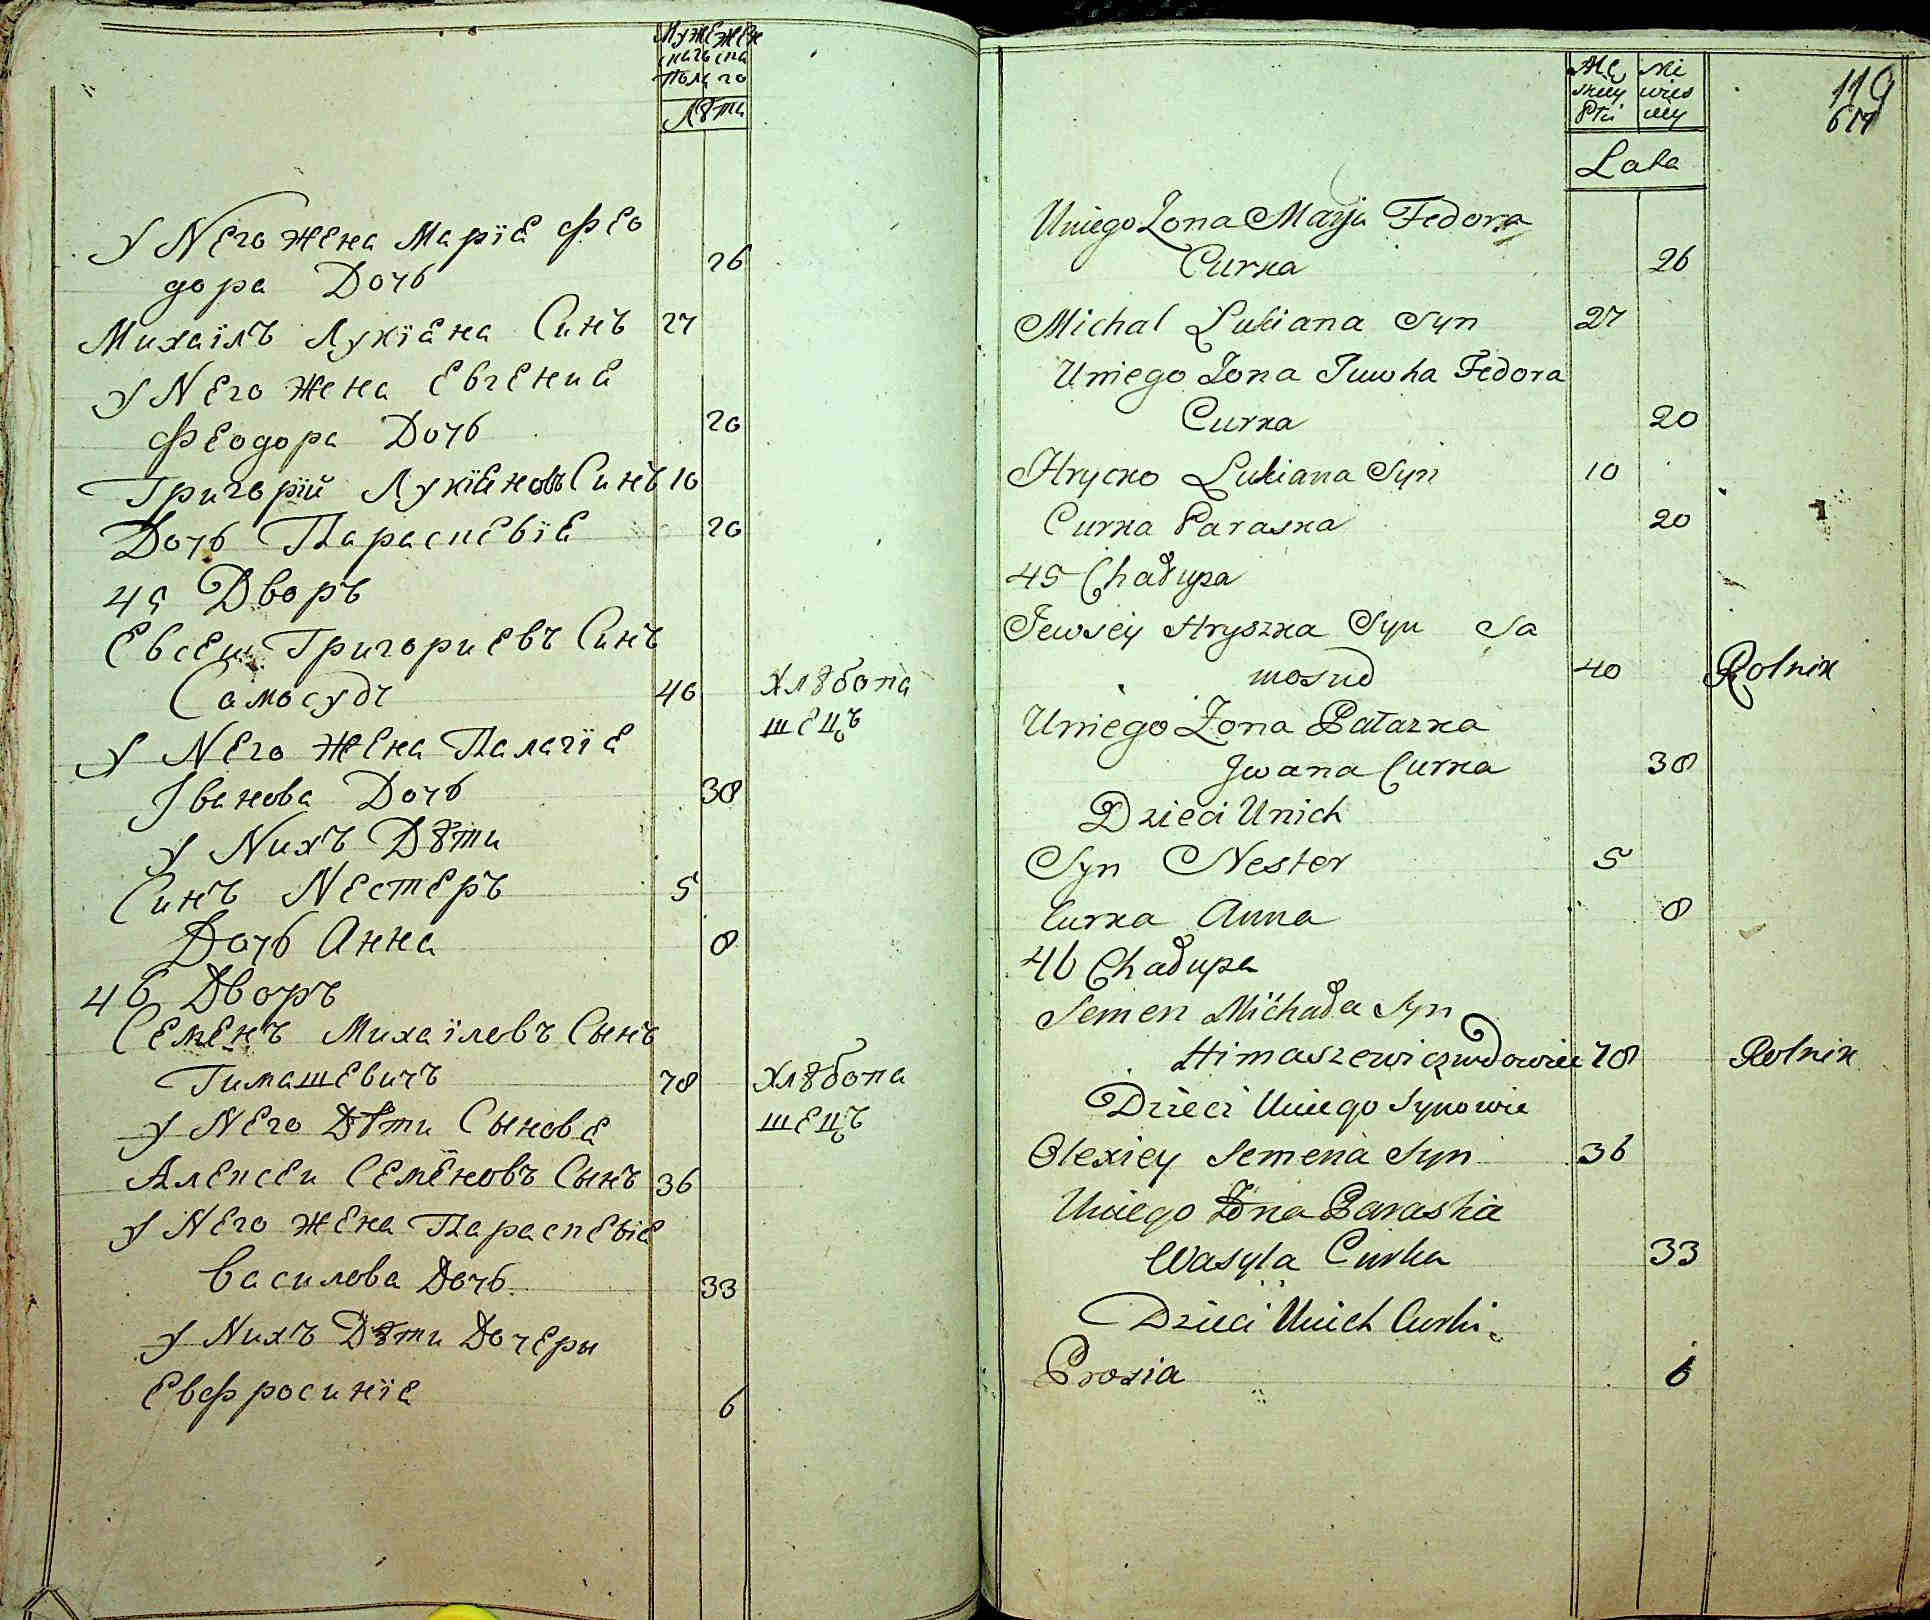 Мужес Жен
каго ска
Пола го
Лѣта
У Него жена Марїя Ѳео
дора Дочь 26
Михаілъ Лукїана Синъ 27
У Него жена Евгения
Феодора Дочь 20
Григорїй Лукїановъ Синъ 10
Дочь Параскевїя 20
45 Дворъ
Евсеи Григориевъ Синъ
Самосудъ 40 Хлѣбопа
шецъ
У Него жена Палагїя
Іванова Дочь 38
У Нихъ Дѣти
Синъ Нестеръ 5
Дочь Анна 8
46 Дворъ
Семенъ Михаіловъ Сынъ
Гимашевичъ 78 Хлѣбопа
шецъ
У Него Дѣти Сыновя
Алексеи Семеновъ Сынъ 36
У Него жена Параскевія
Василова Дочь 33
У Нихъ Дѣти Дочеры
Евфросинїя 6
Mę Nie
szey wies
Płci ciey
Lata
119
617
Uniego Zona Marja Fedora
Curka 26
Michal Lukiana Syn 27
Uniego Zona Juwha Fedora
Curka 20
Hrycko Lukiana Syn 10
Curka Paraska 20
45 Chałupa
Jewsey Hryszka Syn Sa
mosud 40 Rolnik
Uniego Zona Pałazka
Jwana Curka 38
Dzieci Unich
Syn Nester 5
Curka Anna 8
46 Chałupa
Semen Michała Syn
Himaszewicz wdowiec 78 Rolnik
Dzieci Uniego Synowie
Olexiey Semena Syn 36
Uniego Zona Paraskia
Wasyla Curka 33
Dzieci Unich Curki
Prosia 6